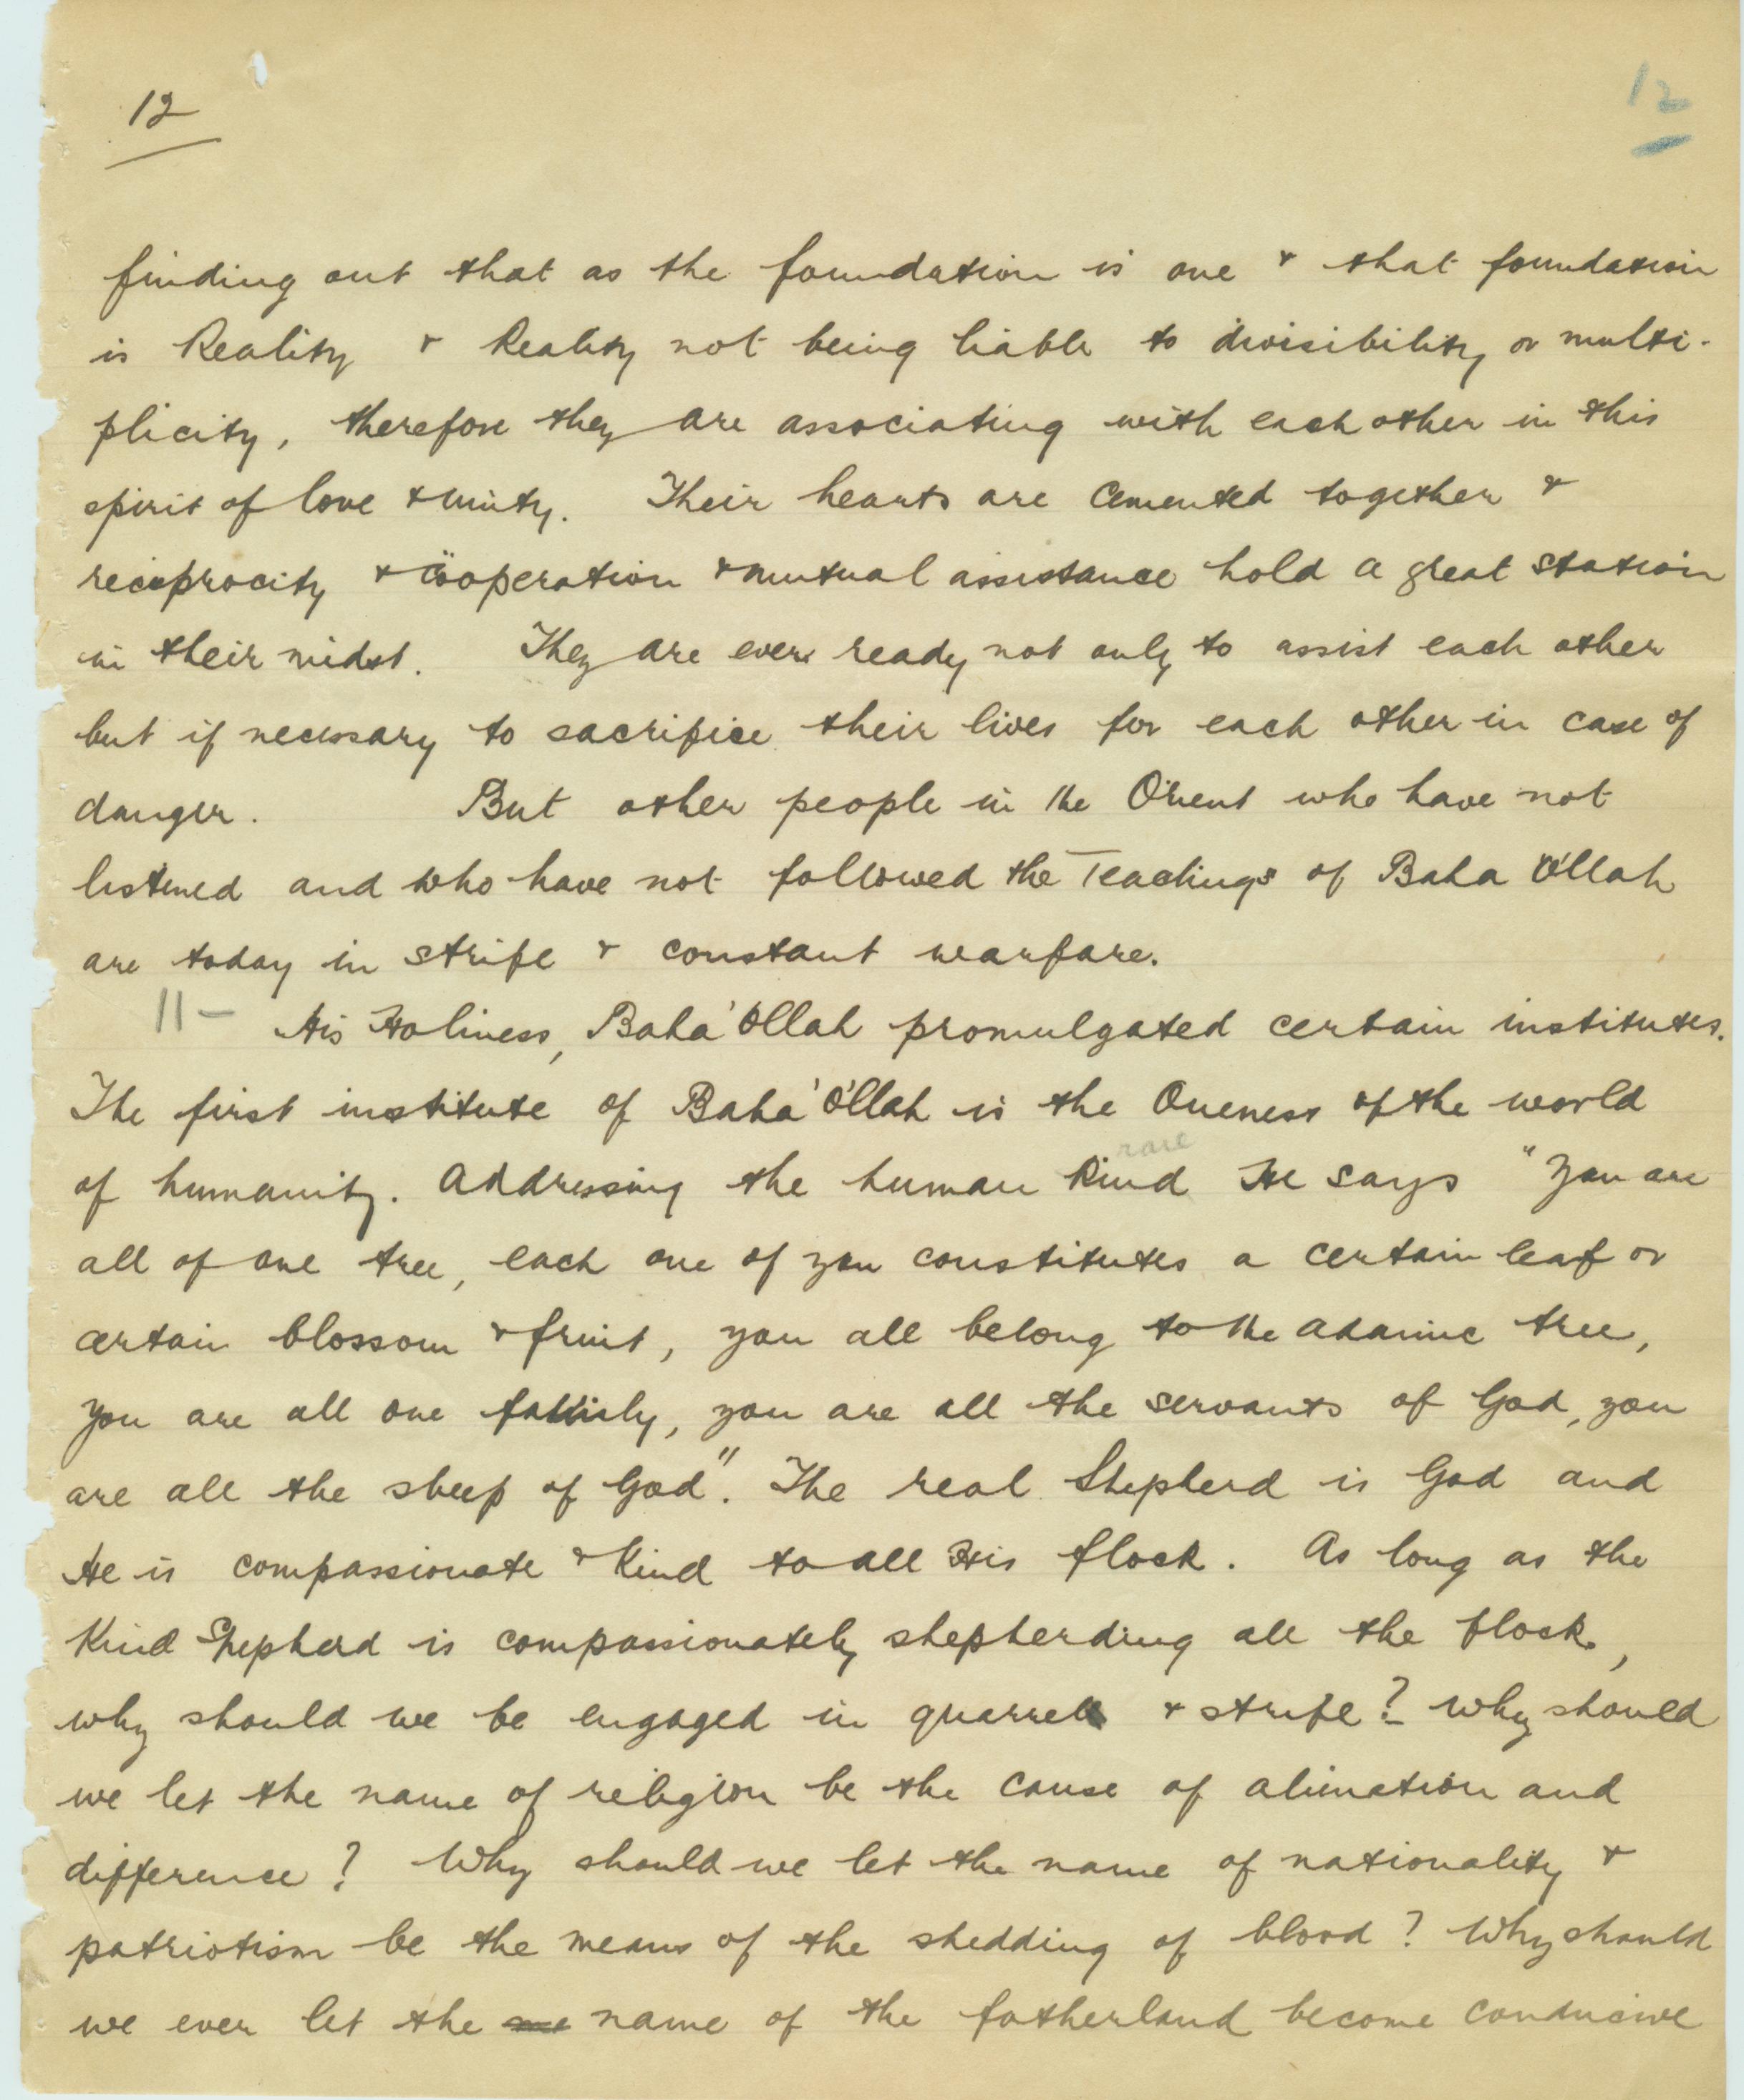 12
12
finding out that as the foundation is one & that foundation
is Reality & Reality not being liable to divisibility or multi-
plicity, therefore they are associating with each other in this
spirit of love & unity. Their hearts are cemented together &
reciprocity & coöperation & mutual assistance hold a great station
in their midst. They are ever ready not only to assist each other
but if necessary to sacrifice their lives for each other in case of
danger. But other people in the Orient who have not
listened and who have not followed the Teachings of Baha O'llah
are today in strife & constant warfare.
11 - His Holiness, Baha' O'llah promulgated certain institutes.
The first institute of Baha' O'llah is the Oneness of the world
race
of humanity. Addressing the human kind He says "You are
all of one tree, each one of you constitutes a certain leaf or
certain blossom & fruit, you all belong to the adamic tree,
you are all one family, you are all the servants of God, you
are all the sheep of God". The real Shepherd is God and
He is compassionate & kind to all His flock. As long as the
Kind Shepherd is compassionately shepherding all the flock,
why should we be engaged in quarrel & strife? Why should
we let the name of religion be the cause of alienation and
difference? Why should we let the name of nationality &
patriotism be the means of the shedding of blood? Why should
we ever let the name of the fatherland become conducive